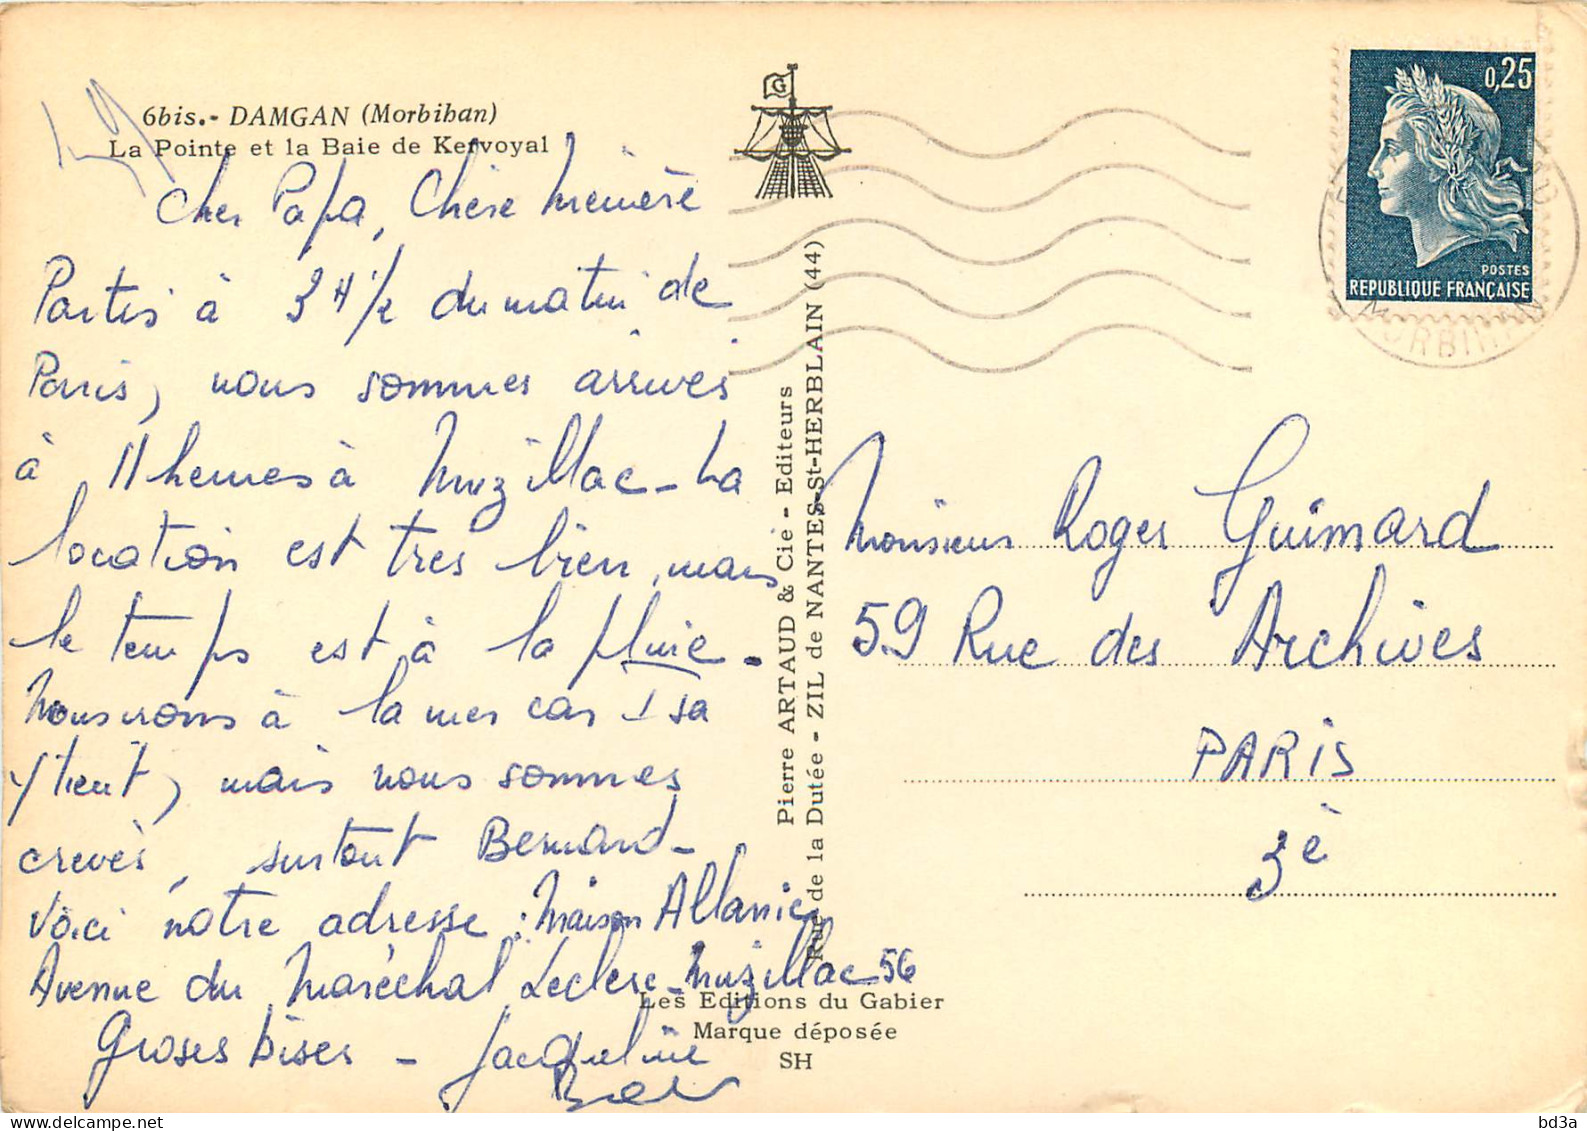 6bis.- DAMGAN (Morbihan)
La Pointe et la Baie de Kervoyal
Cher Papa, Chère Mémère
Partis à 3 H 1/2 du matin de
Paris, nous sommes arrivés
à 11 heures à Muzillac - La
location est très bien, mais
le temps est à la pluie.
Nous irons à la mer car I sa
y tient, mais nous sommes
crevés, surtout Bernard -
Voici notre adresse : Maison Allanic
Avenue du Maréchal Leclerc - Muzillac 56
Groses bises - Jacqueline
G
Pierre ARTAUD & Cie - Editeurs
Rue de la Dutée - ZIL de NANTES-St-HERBLAIN (44)
Les Editions du Gabier
Marque déposée
SH
0,25
POSTES
REPUBLIQUE FRANÇAISE
MORBIHAN
Monsieur Roger Guimard
59 Rue des Archives
PARIS
3è
bd3a